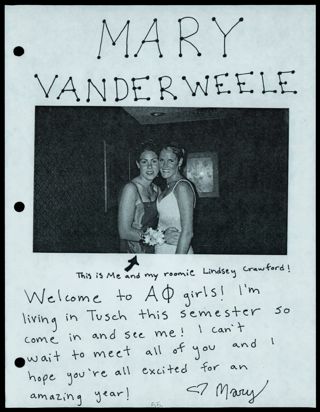 MARY
VANDERWEELE
This is Me and my roomie Lindsey Crawford!
Welcome to AΦ girls! I'm
living in Tusch this semester so
come in and see me! I can't
wait to meet all of you and I
hope you're all excited for an
amazing year! ♡ Mary